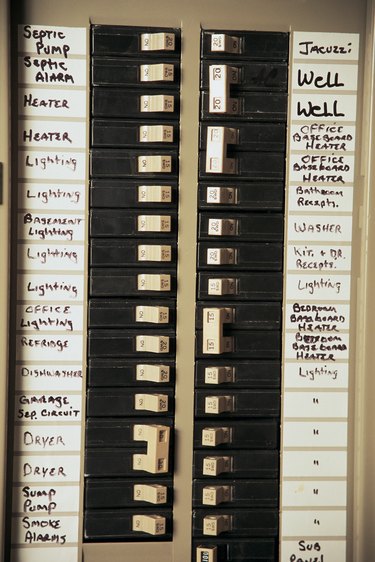 SEPTIC
PUMP
SEPTIC
ALARM
HEATER
HEATER
LIGHTING
LIGHTING
BASEMENT
LIGHTING
LIGHTING
LIGHTING
OFFICE
LIGHTING
REFRIDGE
DISHWASHER
GARBAGE
SEP. CIRCUIT
DRYER
DRYER
SUMP
PUMP
SMOKE
ALARMS
JACUZZI
WELL
WELL
OFFICE
BASEBOARD
HEATER
OFFICE
BASEBOARD
HEATER
BATHROOM
RECEPTS.
WASHER
KIT. & DR.
RECEPTS.
LIGHTING
BEDROOM
BASEBOARD
HEATER
BEDROOM
BASEBOARD
HEATER
LIGHTING
"
"
"
"
"
SUB
PANEL